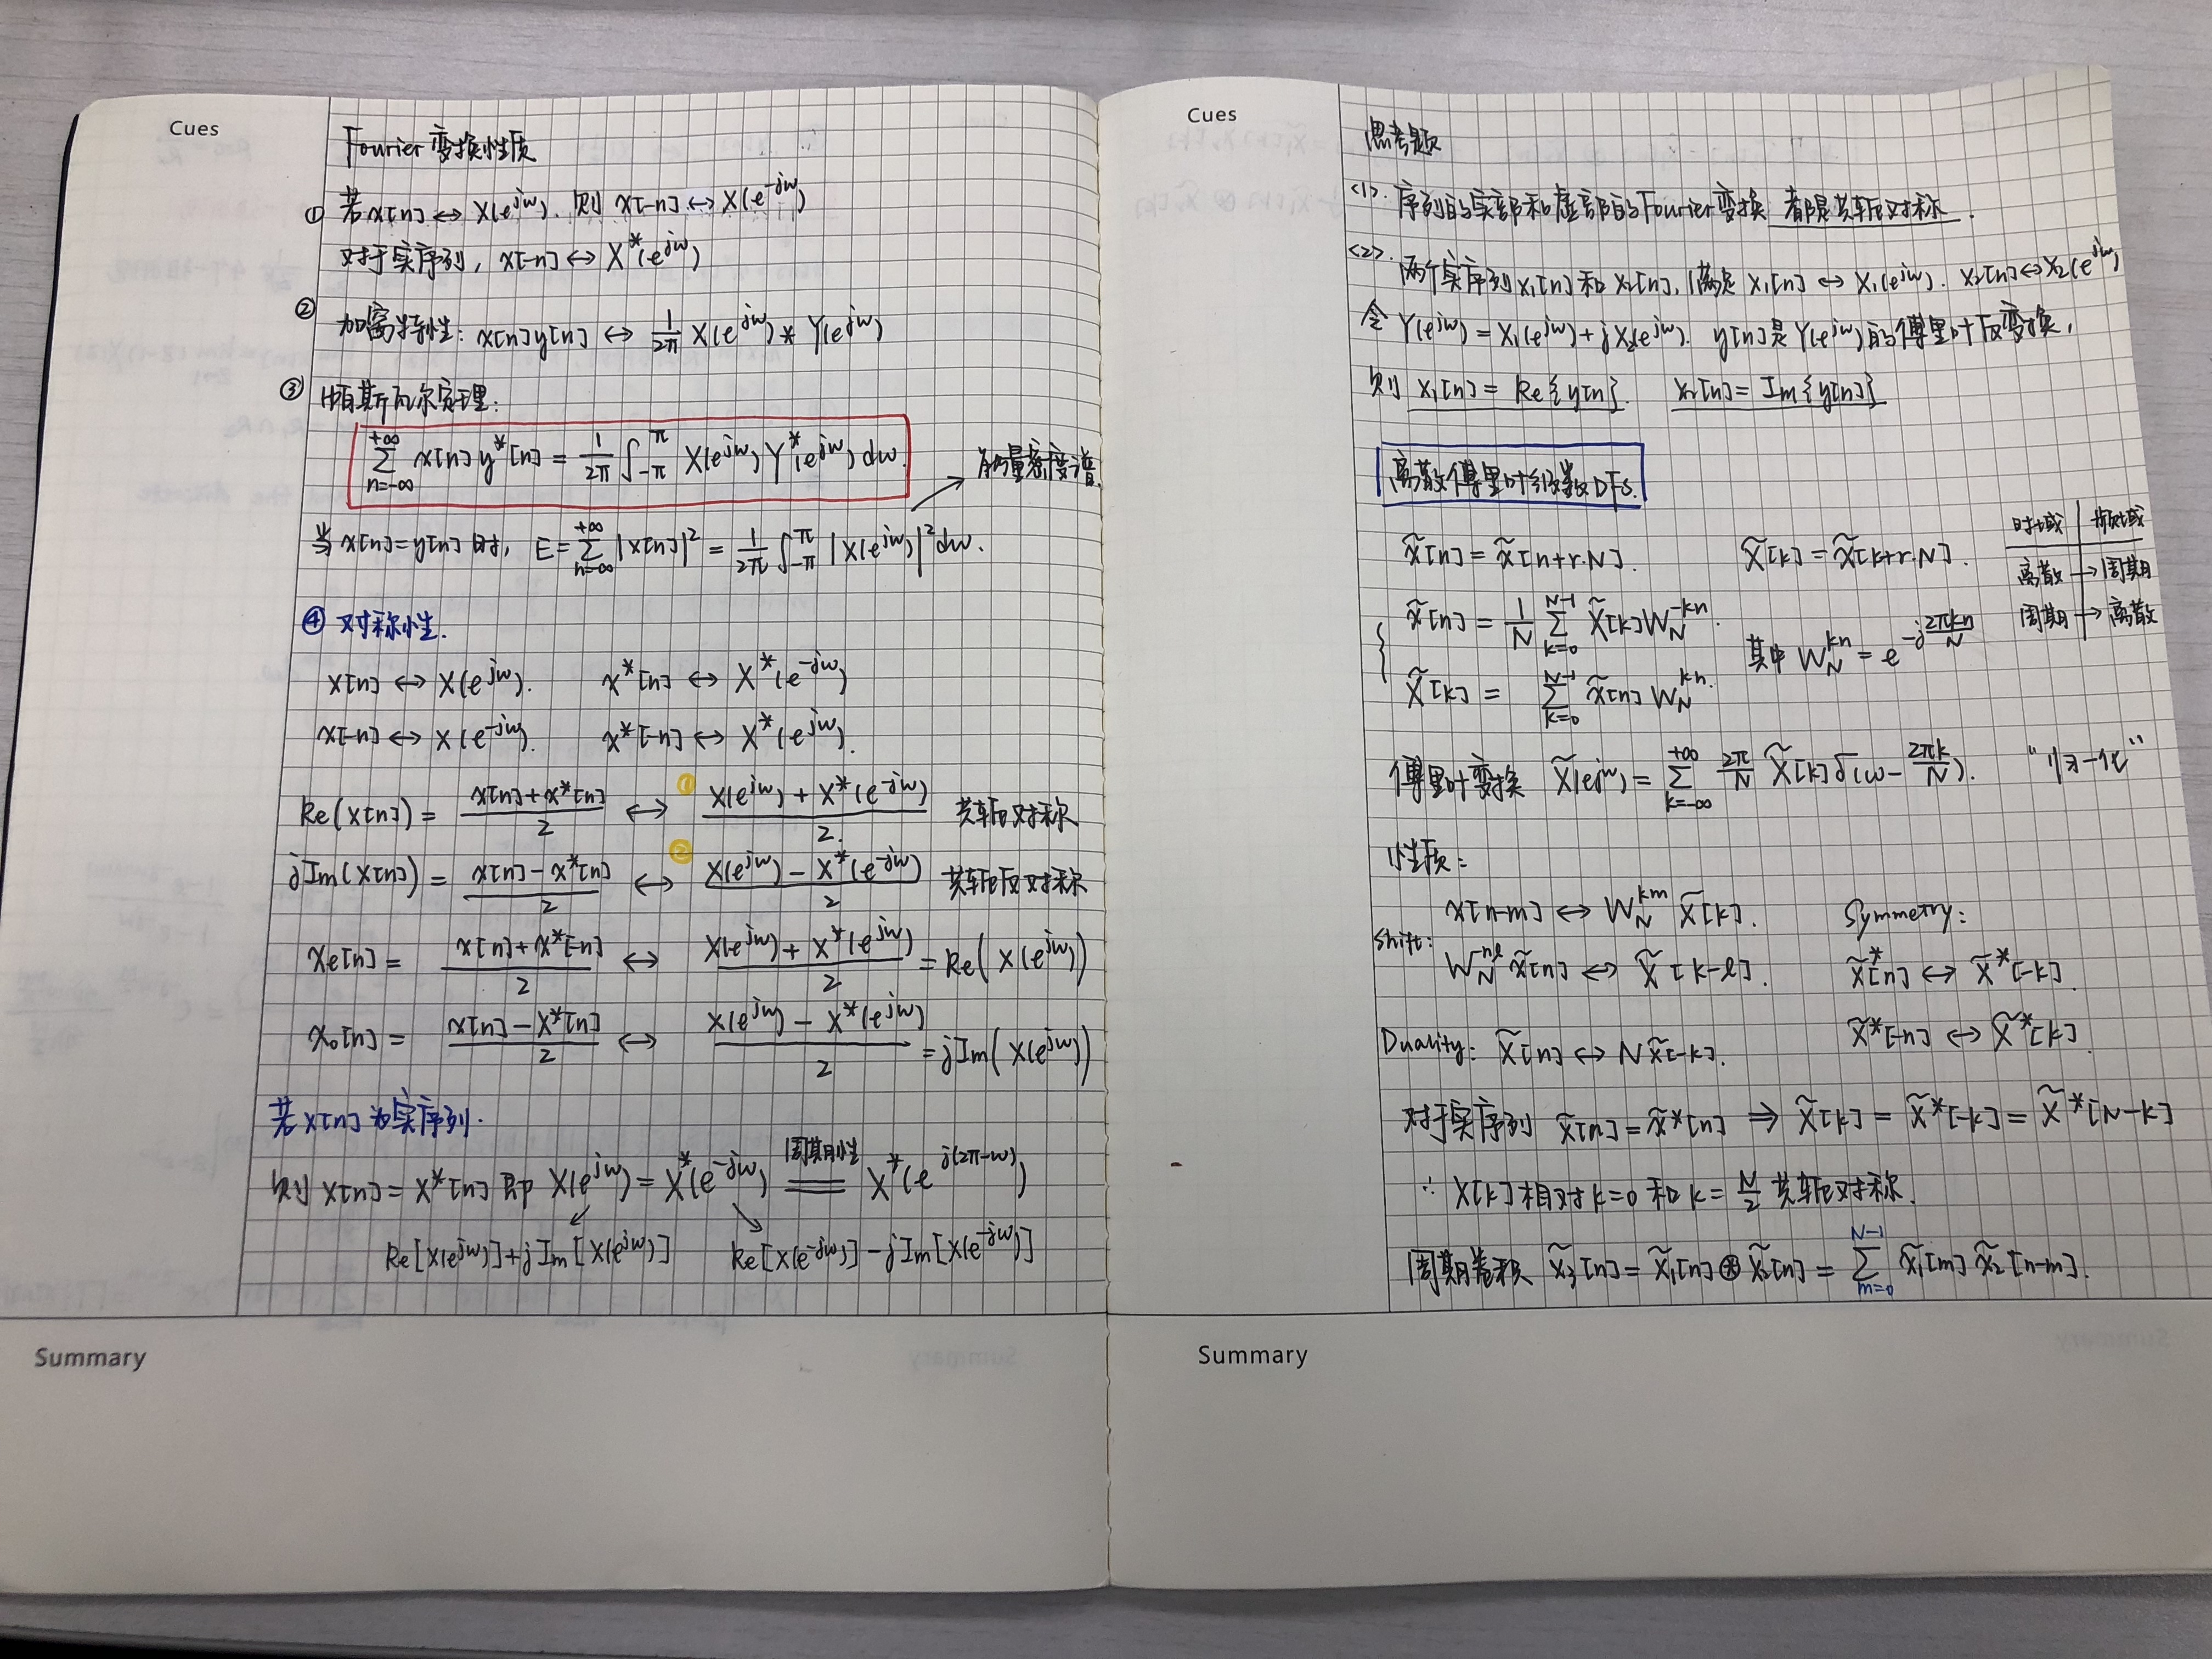 Cues
Fourier 变换性质
① 若x[n]↔X(e^{jω}). 则 x[-n]↔X(e^{-jω})
对于实序列, x[-n]↔X*(e^{jω})
② 加窗特性: x[n]y[n] ↔ \frac{1}{2π} X(e^{jω}) * Y(e^{jω})
③ 帕斯瓦尔定理:
\sum_{n=-∞}^{+∞} x[n] y*[n] = \frac{1}{2π} ∫_{-π}^{π} X(e^{jω}) Y*(e^{jω}) dω.
能量密度谱.
当x[n]=y[n]时, E=\sum_{n=-∞}^{+∞} |x[n]|^2 = \frac{1}{2π} ∫_{-π}^{π} |X(e^{jω})|^2 dω.
④ 对称性.
x[n] ↔ X(e^{jω}). x*[n] ↔ X*(e^{-jω})
x[-n] ↔ X(e^{-jω}). x*[-n] ↔ X*(e^{jω}).
Re(x[n]) = \frac{x[n]+x*[n]}{2} ↔ ① \frac{X(e^{jω}) + X*(e^{-jω})}{2.} 共轭对称
jIm(x[n]) = \frac{x[n]-x*[n]}{2} ↔ ② \frac{X(e^{jω}) - X*(e^{-jω})}{2} 共轭反对称
Xe[n] = \frac{x[n]+x*[-n]}{2} ↔ \frac{X(e^{jω}) + X*(e^{jω})}{2} = Re(X(e^{jω}))
Xo[n] = \frac{x[n]-x*[n]}{2} ↔ \frac{X(e^{jω}) - X*(e^{jω})}{2} = jIm(X(e^{jω}))
若x[n]为实序列.
则 x[n] = x*[n] 即 X(e^{jω}) = X*(e^{-jω}) \overset{周期性}{=} X*(e^{j(2π-ω)})
Re[X(e^{jω})]+jIm[X(e^{jω})] Re[X(e^{-jω})]-jIm[X(e^{-jω})]
Summary
Cues
思考题
<1>. 序列的实部和虚部的Fourier变换 都是共轭对称.
<2>. 两个实序列x₁[n]和x₂[n], 满足 x₁[n] ↔ X₁(e^{jω}). x₂[n]↔X₂(e^{jω})
令 Y(e^{jω}) = X₁(e^{jω}) + jX₂(e^{jω}). y[n]是Y(e^{jω})的傅里叶反变换,
则 x₁[n] = Re{y[n]}. x₂[n] = Im{y[n]}
离散傅里叶级数DFS.
x̃[n] = x̃[n+r·N]. X̃[k] = X̃[k+r·N].
时域 频域
离散 → 周期
周期 → 离散
x̃[n] = \frac{1}{N} \sum_{k=0}^{N-1} X̃[k] W_N^{-kn}.
其中 W_N^{kn} = e^{-j\frac{2πkn}{N}}
X̃[k] = \sum_{k=0}^{N-1} x̃[n] W_N^{kn}.
傅里叶变换 X̃(e^{jω}) = \sum_{k=-∞}^{+∞} \frac{2π}{N} X̃[k] δ(ω-\frac{2πk}{N}). "归一化"
性质:
Shift: x[n-m] ↔ W_N^{km} X̃[k].
W_N^{-nl} x̃[n] ↔ X̃[k-l].
Symmetry:
x̃*[n] ↔ X̃*[-k].
x̃*[-n] ↔ X̃*[k].
Duality: X̃[n] ↔ N x̃[-k].
对于实序列 x̃[n] = x̃*[n] ⇒ X̃[k] = X̃*[-k] = X̃*[N-k]
∴ X[k]相对k=0和k=\frac{N}{2} 共轭对称.
周期卷积 x̃₃[n] = x̃₁[n] ⊛ x̃₂[n] = \sum_{m=0}^{N-1} x̃₁[m] x̃₂[n-m].
Summary